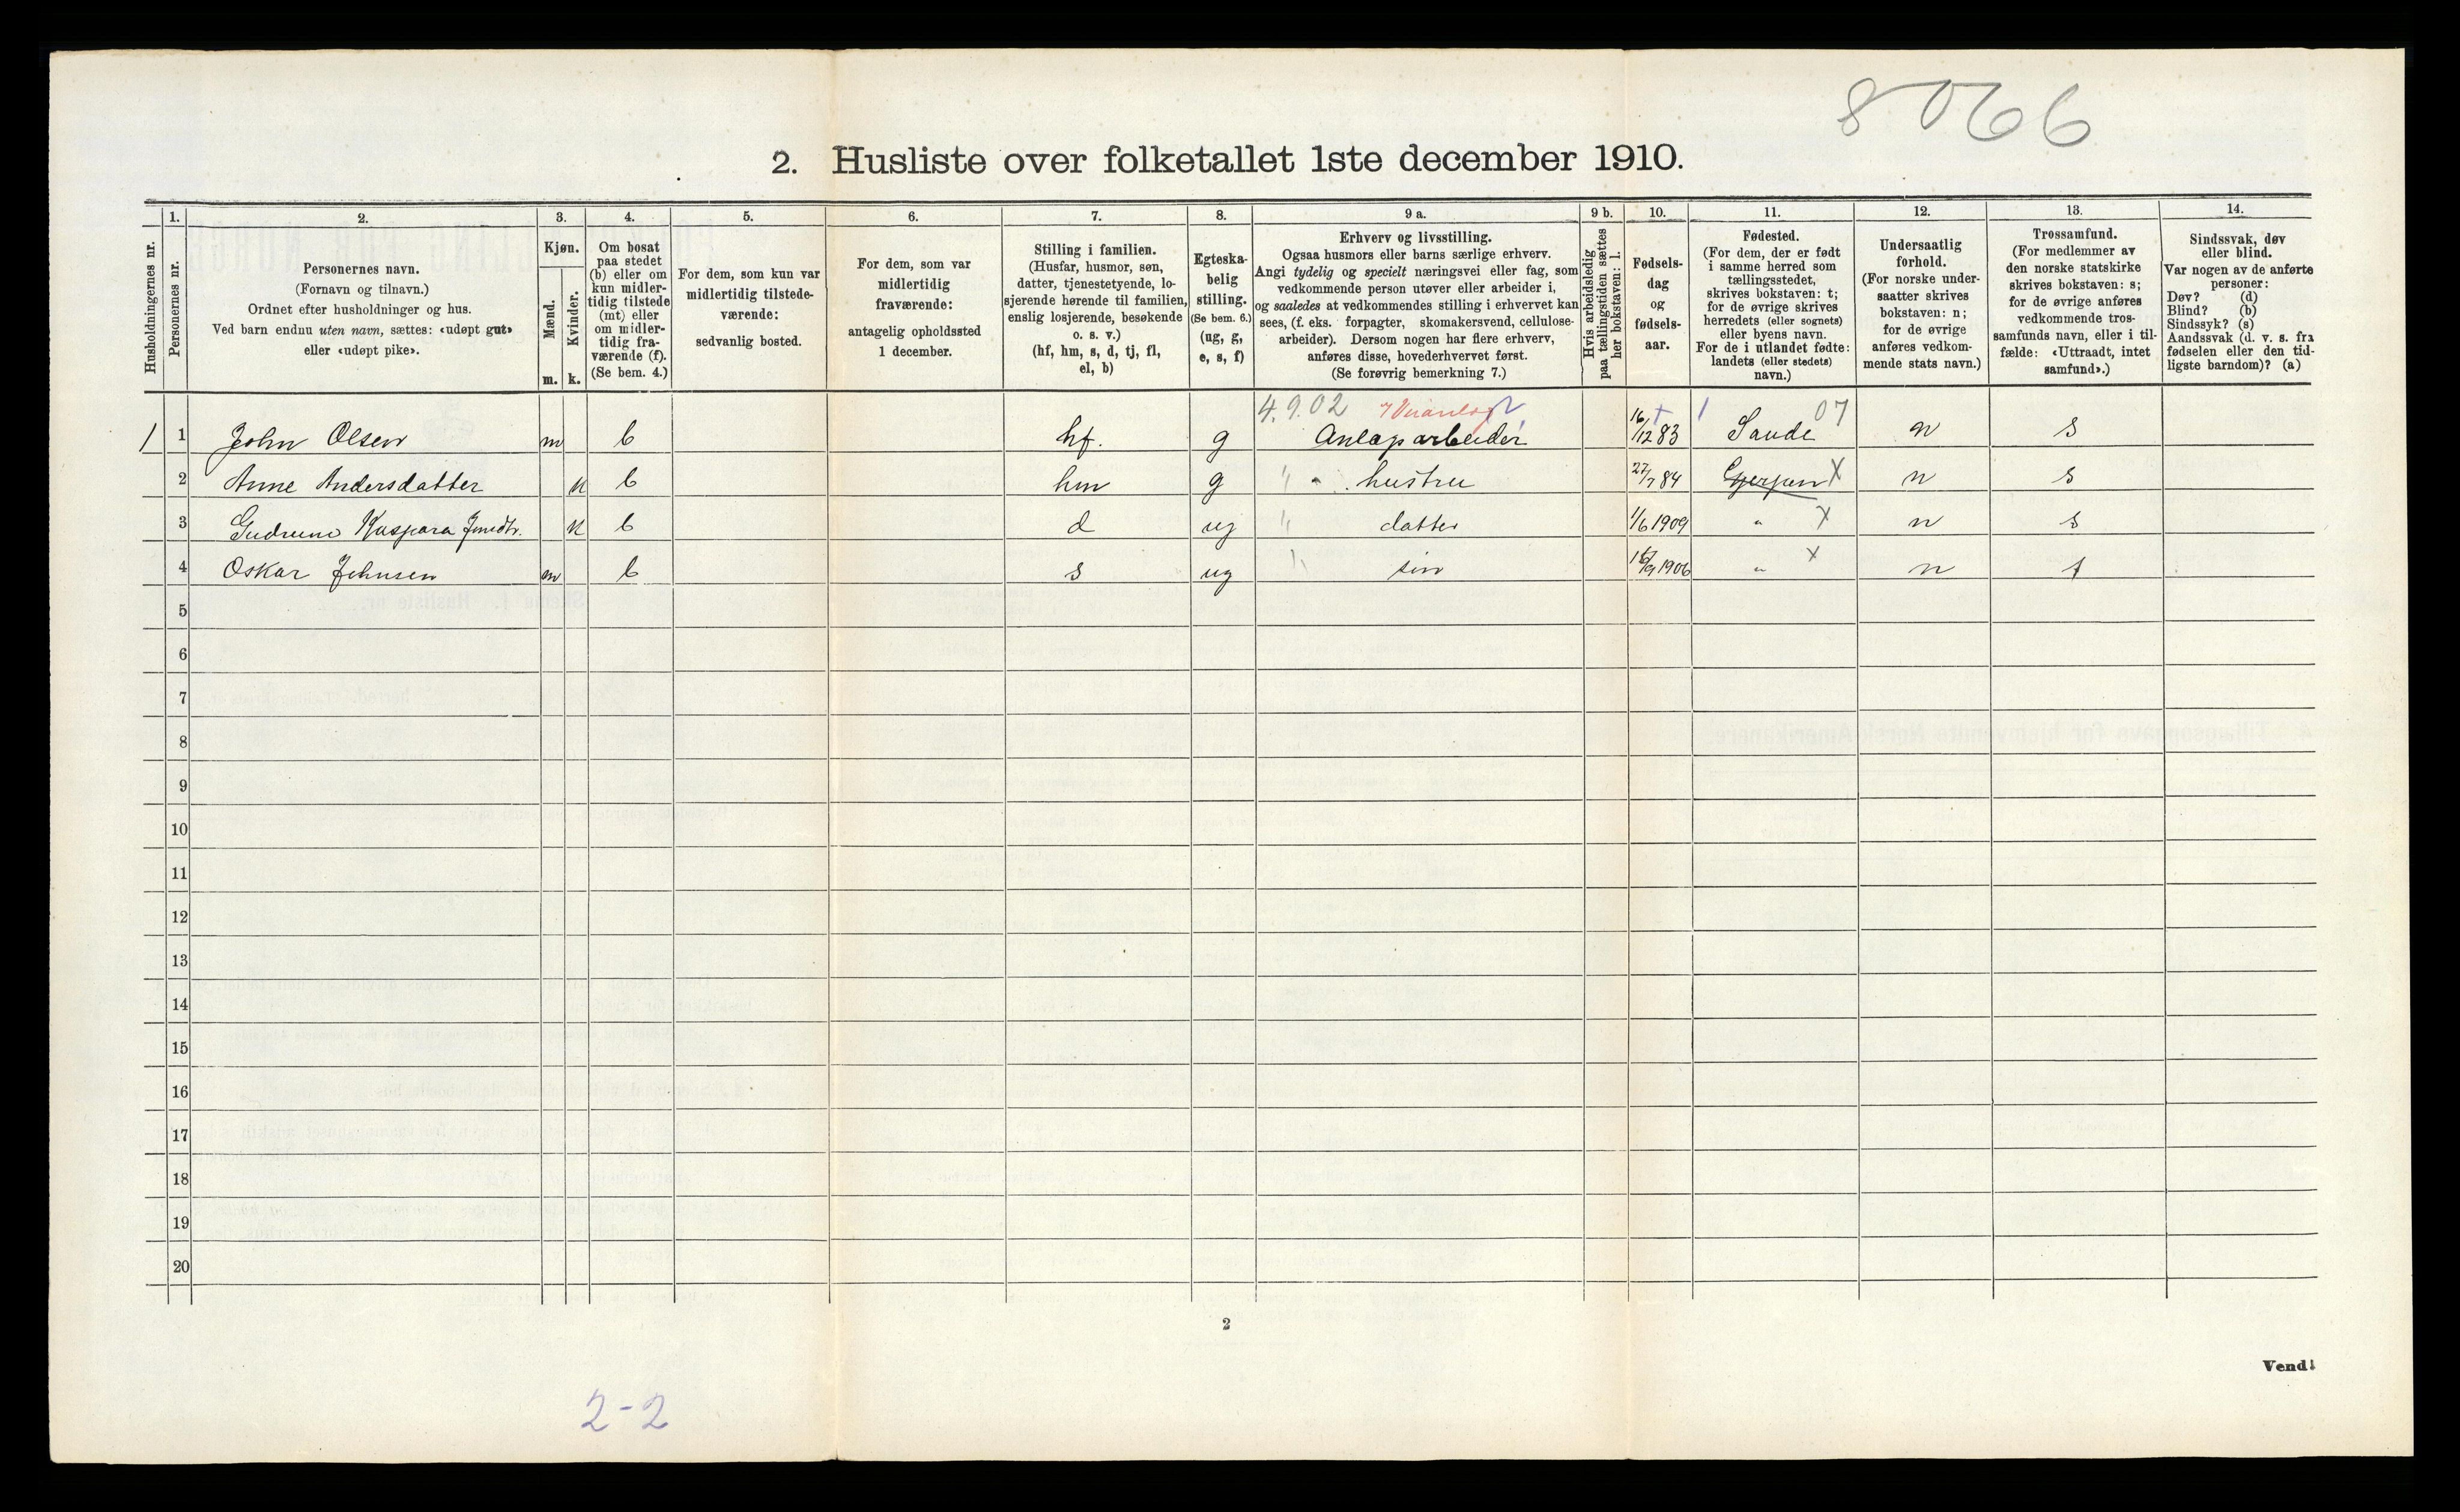 8066
2. Husliste over folketallet 1ste december 1910.
Husholdningernes nr.
1.
Personernes nr.
2.
Personernes navn.
(Fornavn og tilnavn.)
Ordnet efter husholdninger og hus.
Ved barn endnu uten navn, sættes: «udøpt gut»
eller «udøpt pike».
3.
Kjøn.
Mænd.
Kvinder.
m. k.
4.
Om bosat
paa stedet
(b) eller om
kun midler-
tidig tilstede
(mt) eller
om midler-
tidig fra-
værende (f).
(Se bem. 4.)
5.
For dem, som kun var
midlertidig tilstede-
værende:
sedvanlig bosted.
6.
For dem, som var
midlertidig
fraværende:
antagelig opholdssted
1 december.
7.
Stilling i familien.
(Husfar, husmor, søn,
datter, tjenestetyende, lo-
sjerende hørende til familien,
enslig losjerende, besøkende
o. s. v.)
(hf, hm, s, d, tj, fl,
el, b)
8.
Egteska-
belig
stilling.
(Se bem. 6.)
(ug, g,
e, s, f)
9 a.
Erhverv og livsstilling.
Ogsaa husmors eller barns særlige erhverv.
Angi tydelig og specielt næringsvei eller fag, som
vedkommende person utøver eller arbeider i,
og saaledes at vedkommendes stilling i erhvervet kan
sees, (f. eks. forpagter, skomakersvend, cellulose-
arbeider). Dersom nogen har flere erhverv,
anføres disse, hovederhvervet først.
(Se forøvrig bemerkning 7.)
9 b.
Hvis arbeidsledig
paa tællingstiden sættes
her bokstaven: l.
10.
Fødsels-
dag
og
fødsels-
aar.
11.
Fødested.
(For dem, der er født
i samme herred som
tællingsstedet,
skrives bokstaven: t;
for de øvrige skrives
herredets (eller sognets)
eller byens navn.
For de i utlandet fødte:
landets (eller stedets)
navn.)
12.
Undersaatlig
forhold.
(For norske under-
saatter skrives
bokstaven: n;
for de øvrige
anføres vedkom-
mende stats navn.)
13.
Trossamfund.
(For medlemmer av
den norske statskirke
skrives bokstaven: s;
for de øvrige anføres
vedkommende tros-
samfunds navn, eller i til-
fælde: «Uttraadt, intet
samfund».)
14.
Sindssvak, døv
eller blind.
Var nogen av de anførte
personer:
Døv? (d)
Blind? (b)
Sindssyk? (s)
Aandssvak (d. v. s. fra
fødselen eller den tid-
ligste barndom)? (a)
4.9.02 07
1 1 John Olsen m b hf. g Anlægsarbeider 16/12 83 Saude n s
2 Anne Andersdatter k b hm g " " hustru 27/7 84 Gjerpen X n s
3 Gudrun Kaspara k b d ug " datter 1/6 1909 " X n s
4 Oskar Johnsen m b s ug " søn 1906 " X n s
5
6
7
8
9
10
11
12
13
14
15
16
17
18
19
20
2
Vend!
2-2